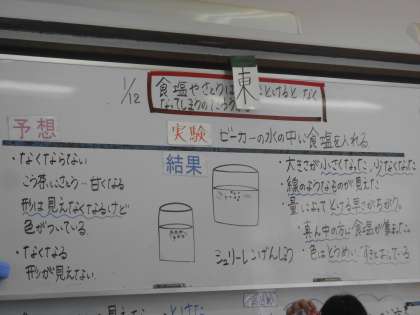 1/12
食塩やさとうは
東
とけると なく
なってしまうのだろうか
予想
実験 ビーカーの水の中に食塩を入れる
・なくならない
こう茶にさとう→甘くなる
形は見えなくなるけど
色がついている
・なくなる
形が見えない
結果
シュリーレンげんしょう
・大きさが小さくなった・少なくなった
・線のようなものが見えた
・量によってとける早さがちがう
・真ん中の方に食塩が集まった
・色はとうめい すきとおっている